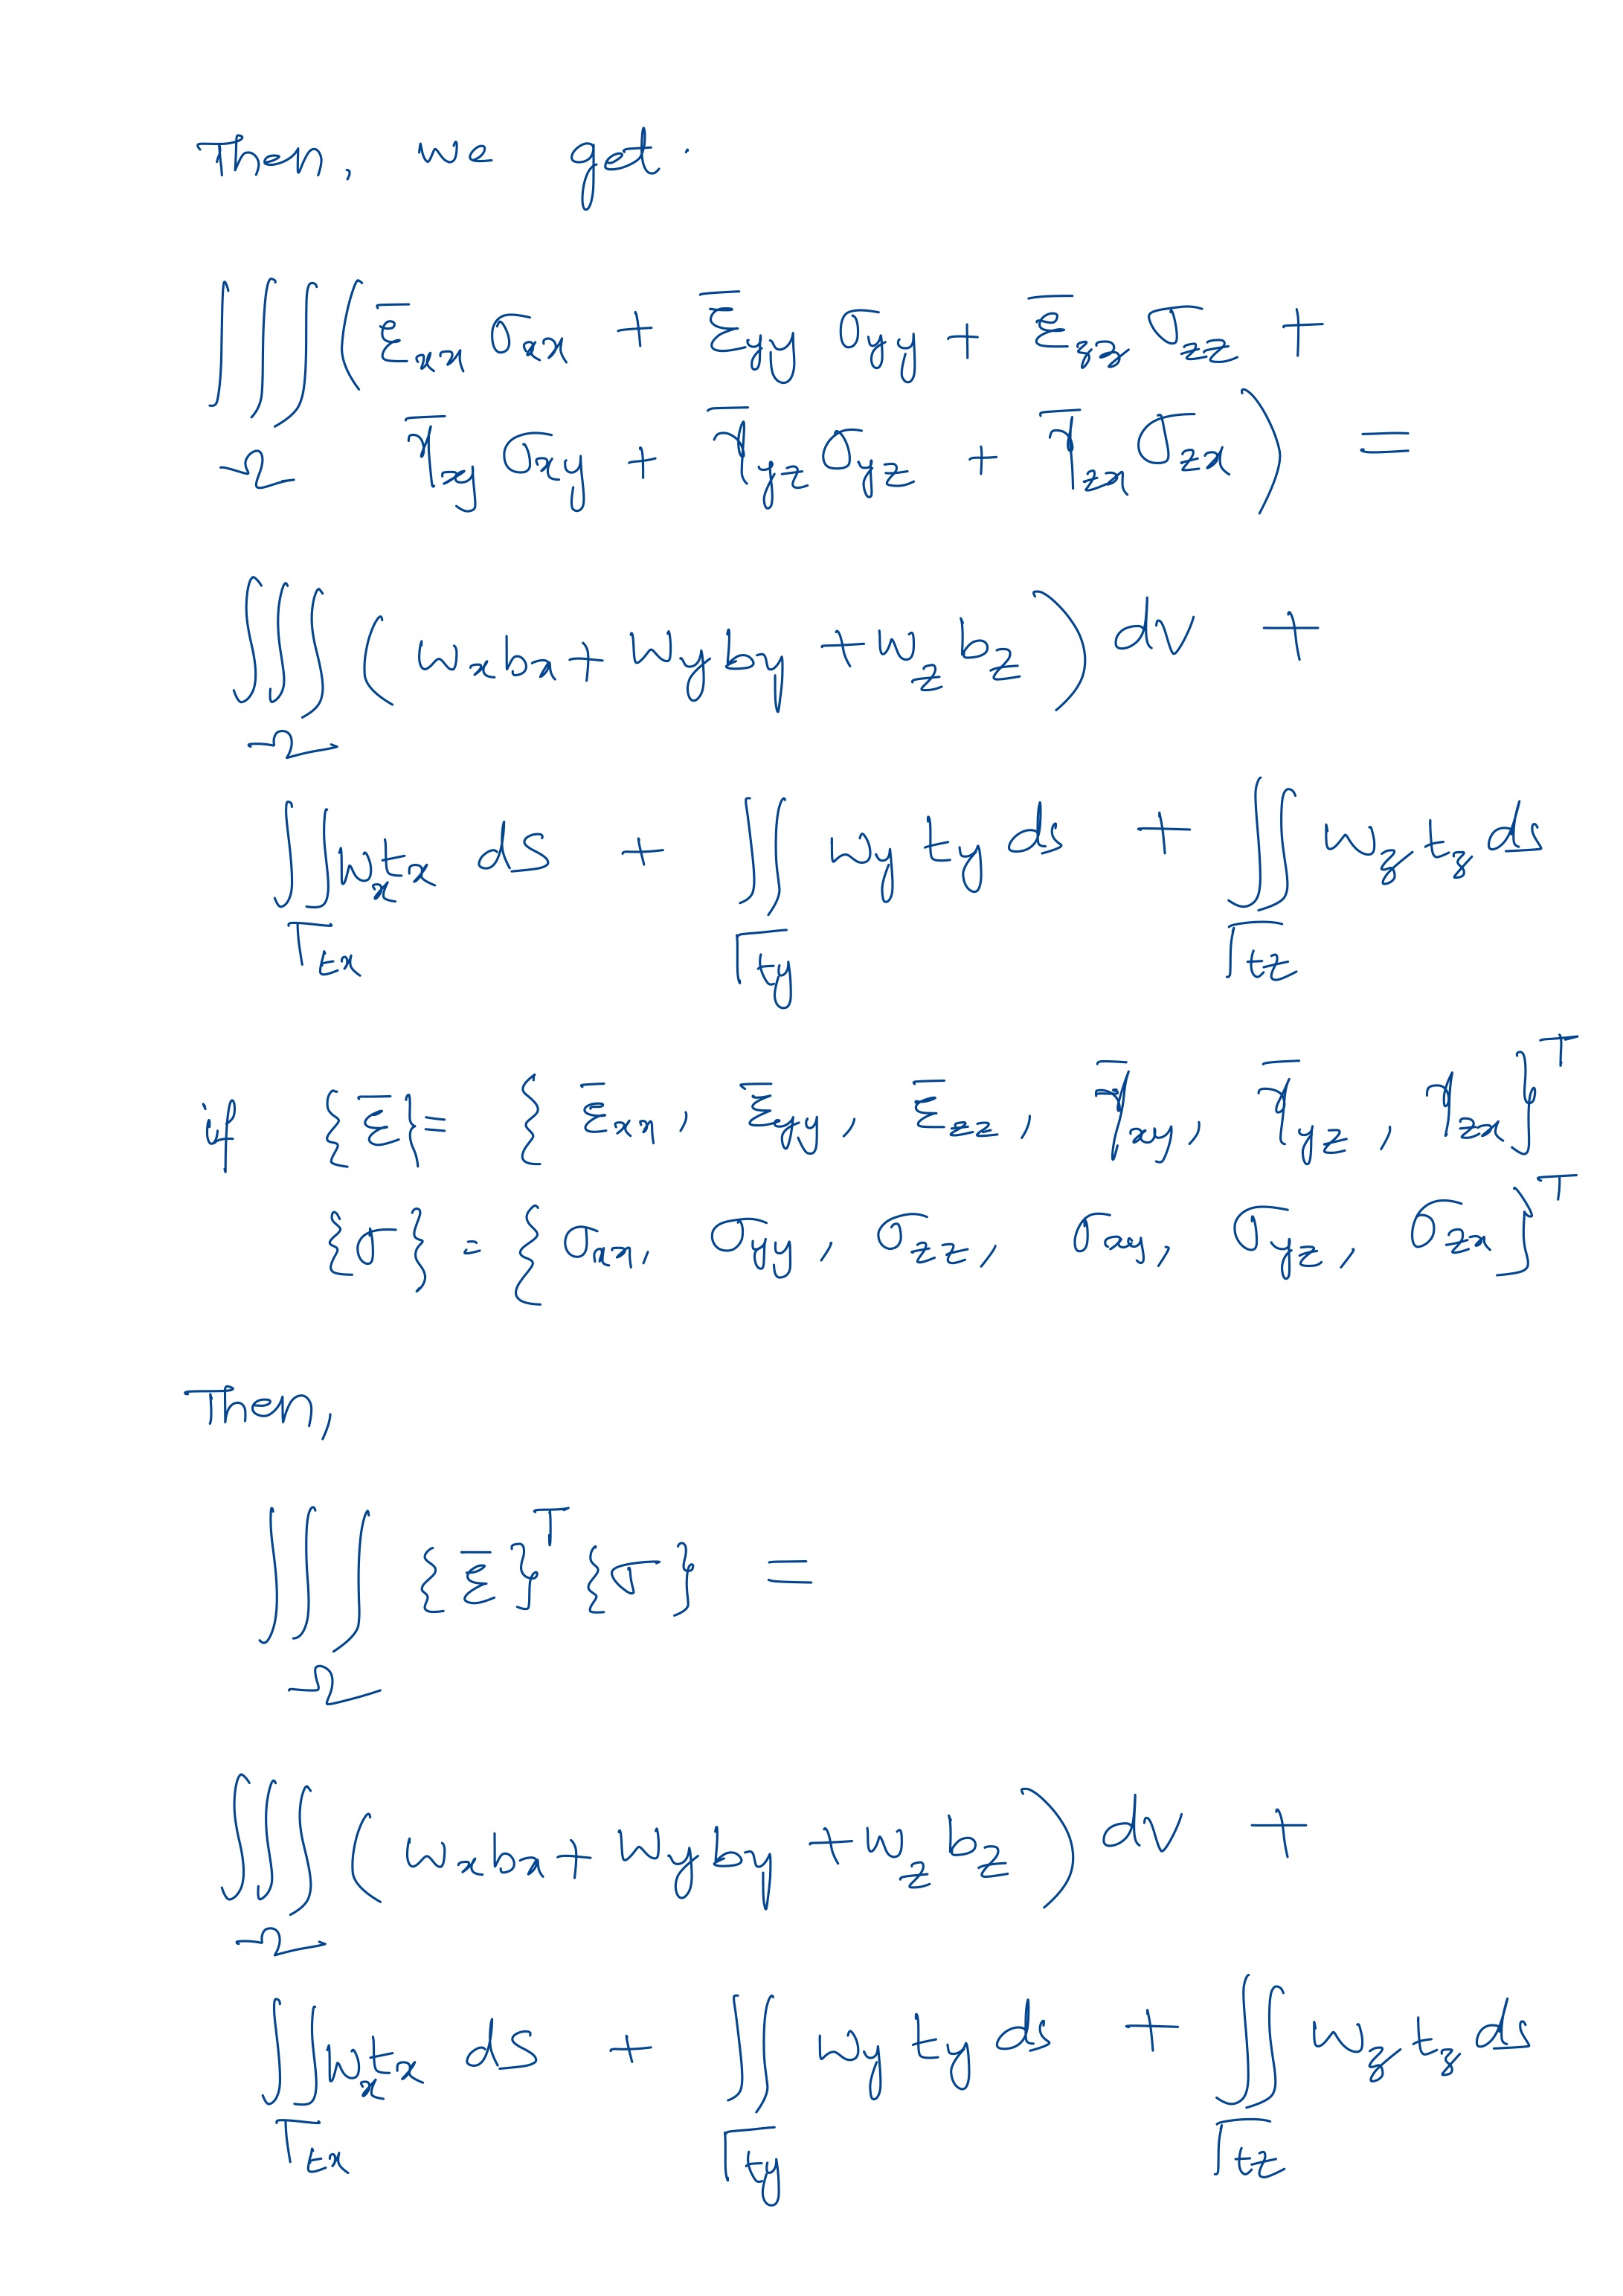 Then, we get.
∭ ( ε̄_xx σ_xx + ε̄_yy σ_yy + ε̄_zz σ_zz +
Ω γ̄_xy σ_xy + γ̄_yz σ_yz + γ̄_zx σ_zx ) =
∭ ( w_x b_x + w_y b_y + w_z b_z ) dv +
Ω
∬ w_x t_x ds + ∬ w_y t_y ds + ∬ w_z t_z ds
Γ_tx Γ_ty Γ_tz
if {ε̄} = { ε̄_xx, ε̄_yy, ε̄_zz, γ̄_xy, γ̄_yz, γ_zx }^T
{σ} = { σ_xx, σ_yy, σ_zz, σ_xy, σ_yz, σ_zx }^T
Then,
∭ {ε̄}^T {σ} =
Ω
∭ ( w_x b_x + w_y b_y + w_z b_z ) dv +
Ω
∬ w_x t_x ds + ∬ w_y t_y ds + ∬ w_z t_z ds
Γ_tx Γ_ty Γ_tz